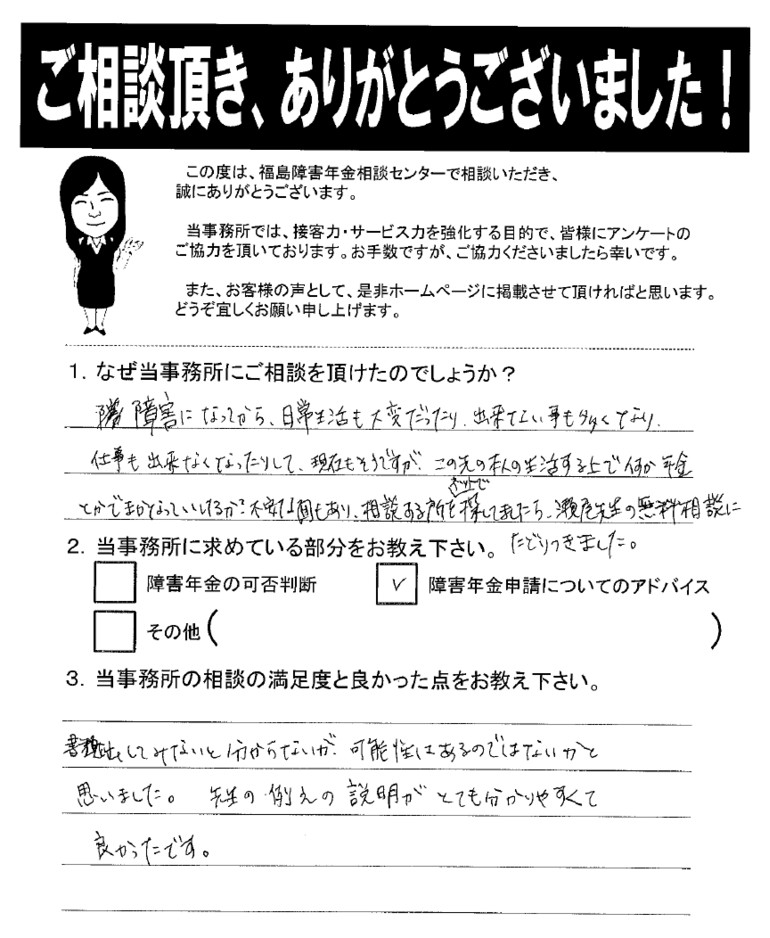 ご相談頂き、ありがとうございました！
この度は、福島障害年金相談センターで相談いただき、
誠にありがとうございます。
当事務所では、接客力・サービス力を強化する目的で、皆様にアンケートの
ご協力を頂いております。お手数ですが、ご協力くださいましたら幸いです。
また、お客様の声として、是非ホームページに掲載させて頂ければと思います。
どうぞ宜しくお願い申し上げます。
1. なぜ当事務所にご相談を頂けたのでしょうか？
障害になってから、日常生活も大変だったり、出来てない事も多くなり、
仕事も出来なくなったりして、現在もそうですが、この先の本人の生活する上で何か年金
ネットで
とかでまかなっていけるか？不安な面もあり、相談する所を探してましたら、瀬尾先生の無料相談に
たどりつきました。
2. 当事務所に求めている部分をお教え下さい。
障害年金の可否判断
✓ 障害年金申請についてのアドバイス
その他（ ）
3. 当事務所の相談の満足度と良かった点をお教え下さい。
してみないと分からないが、可能性はあるのではないかと
思いました。 先生の例えの説明がとても分かりやすくて
良かったです。